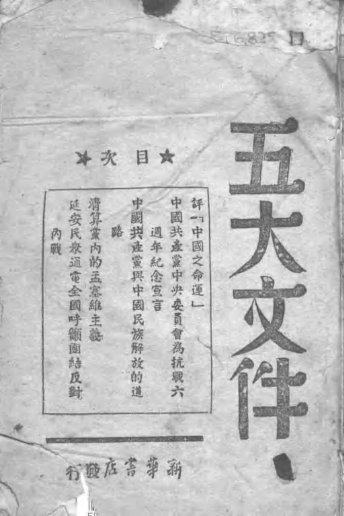 五大文件
★目次★
評「中國之命運」
中國共產黨中央委員會為抗戰六
週年紀念宣言
中國共產黨與中國民族解放的道
路
清算黨內的孟塞維主義
延安民衆通電全國呼籲團結反對
內戰
新華書店發行